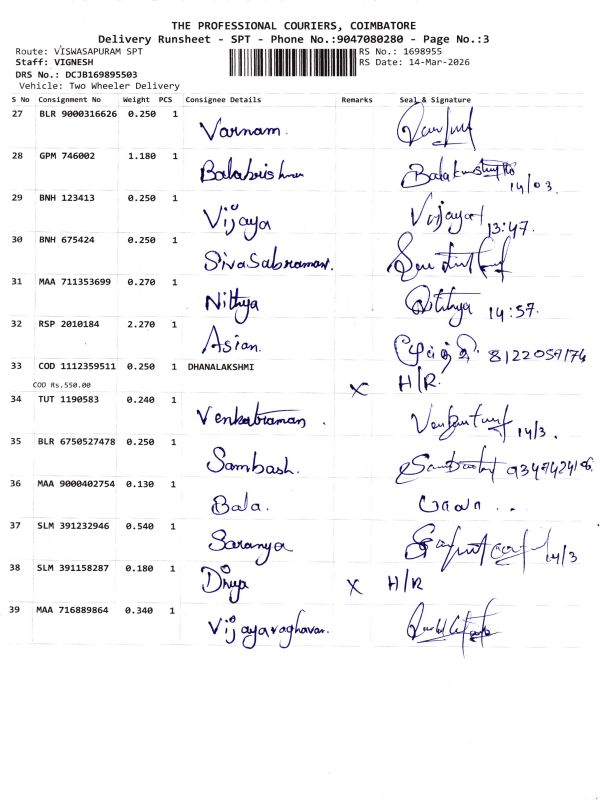 THE PROFESSIONAL COURIERS, COIMBATORE
Delivery Runsheet - SPT - Phone No.:9047080280 - Page No.:3
Route: VISWASAPURAM SPT RS No.: 1698955
Staff: VIGNESH RS Date: 14-Mar-2026
DRS No.: DCJB169895503
Vehicle: Two Wheeler Delivery
S No Consignment No Weight PCS Consignee Details Remarks Seal & Signature
27 BLR 9000316626 0.250 1 Varnam.
28 GPM 746002 1.180 1 Balakrishnan 14/03.
29 BNH 123413 0.250 1 Vijaya Vijaya 13:47.
30 BNH 675424 0.250 1 SivaSabramani.
31 MAA 711353699 0.270 1 Nithya Nithya 14:57.
32 RSP 2010184 2.270 1 Asian.
33 COD 1112359511 0.250 1 DHANALAKSHMI X H/R.
COD Rs.550.00
34 TUT 1190583 0.240 1 Venkatraman. 14/3.
35 BLR 6750527478 0.250 1 Sambash.
36 MAA 9000402754 0.130 1 Bala.
37 SLM 391232946 0.540 1 Saranya 14/3
38 SLM 391158287 0.180 1 Dhivya X H/R
39 MAA 716889864 0.340 1 Vijayaraghavan.